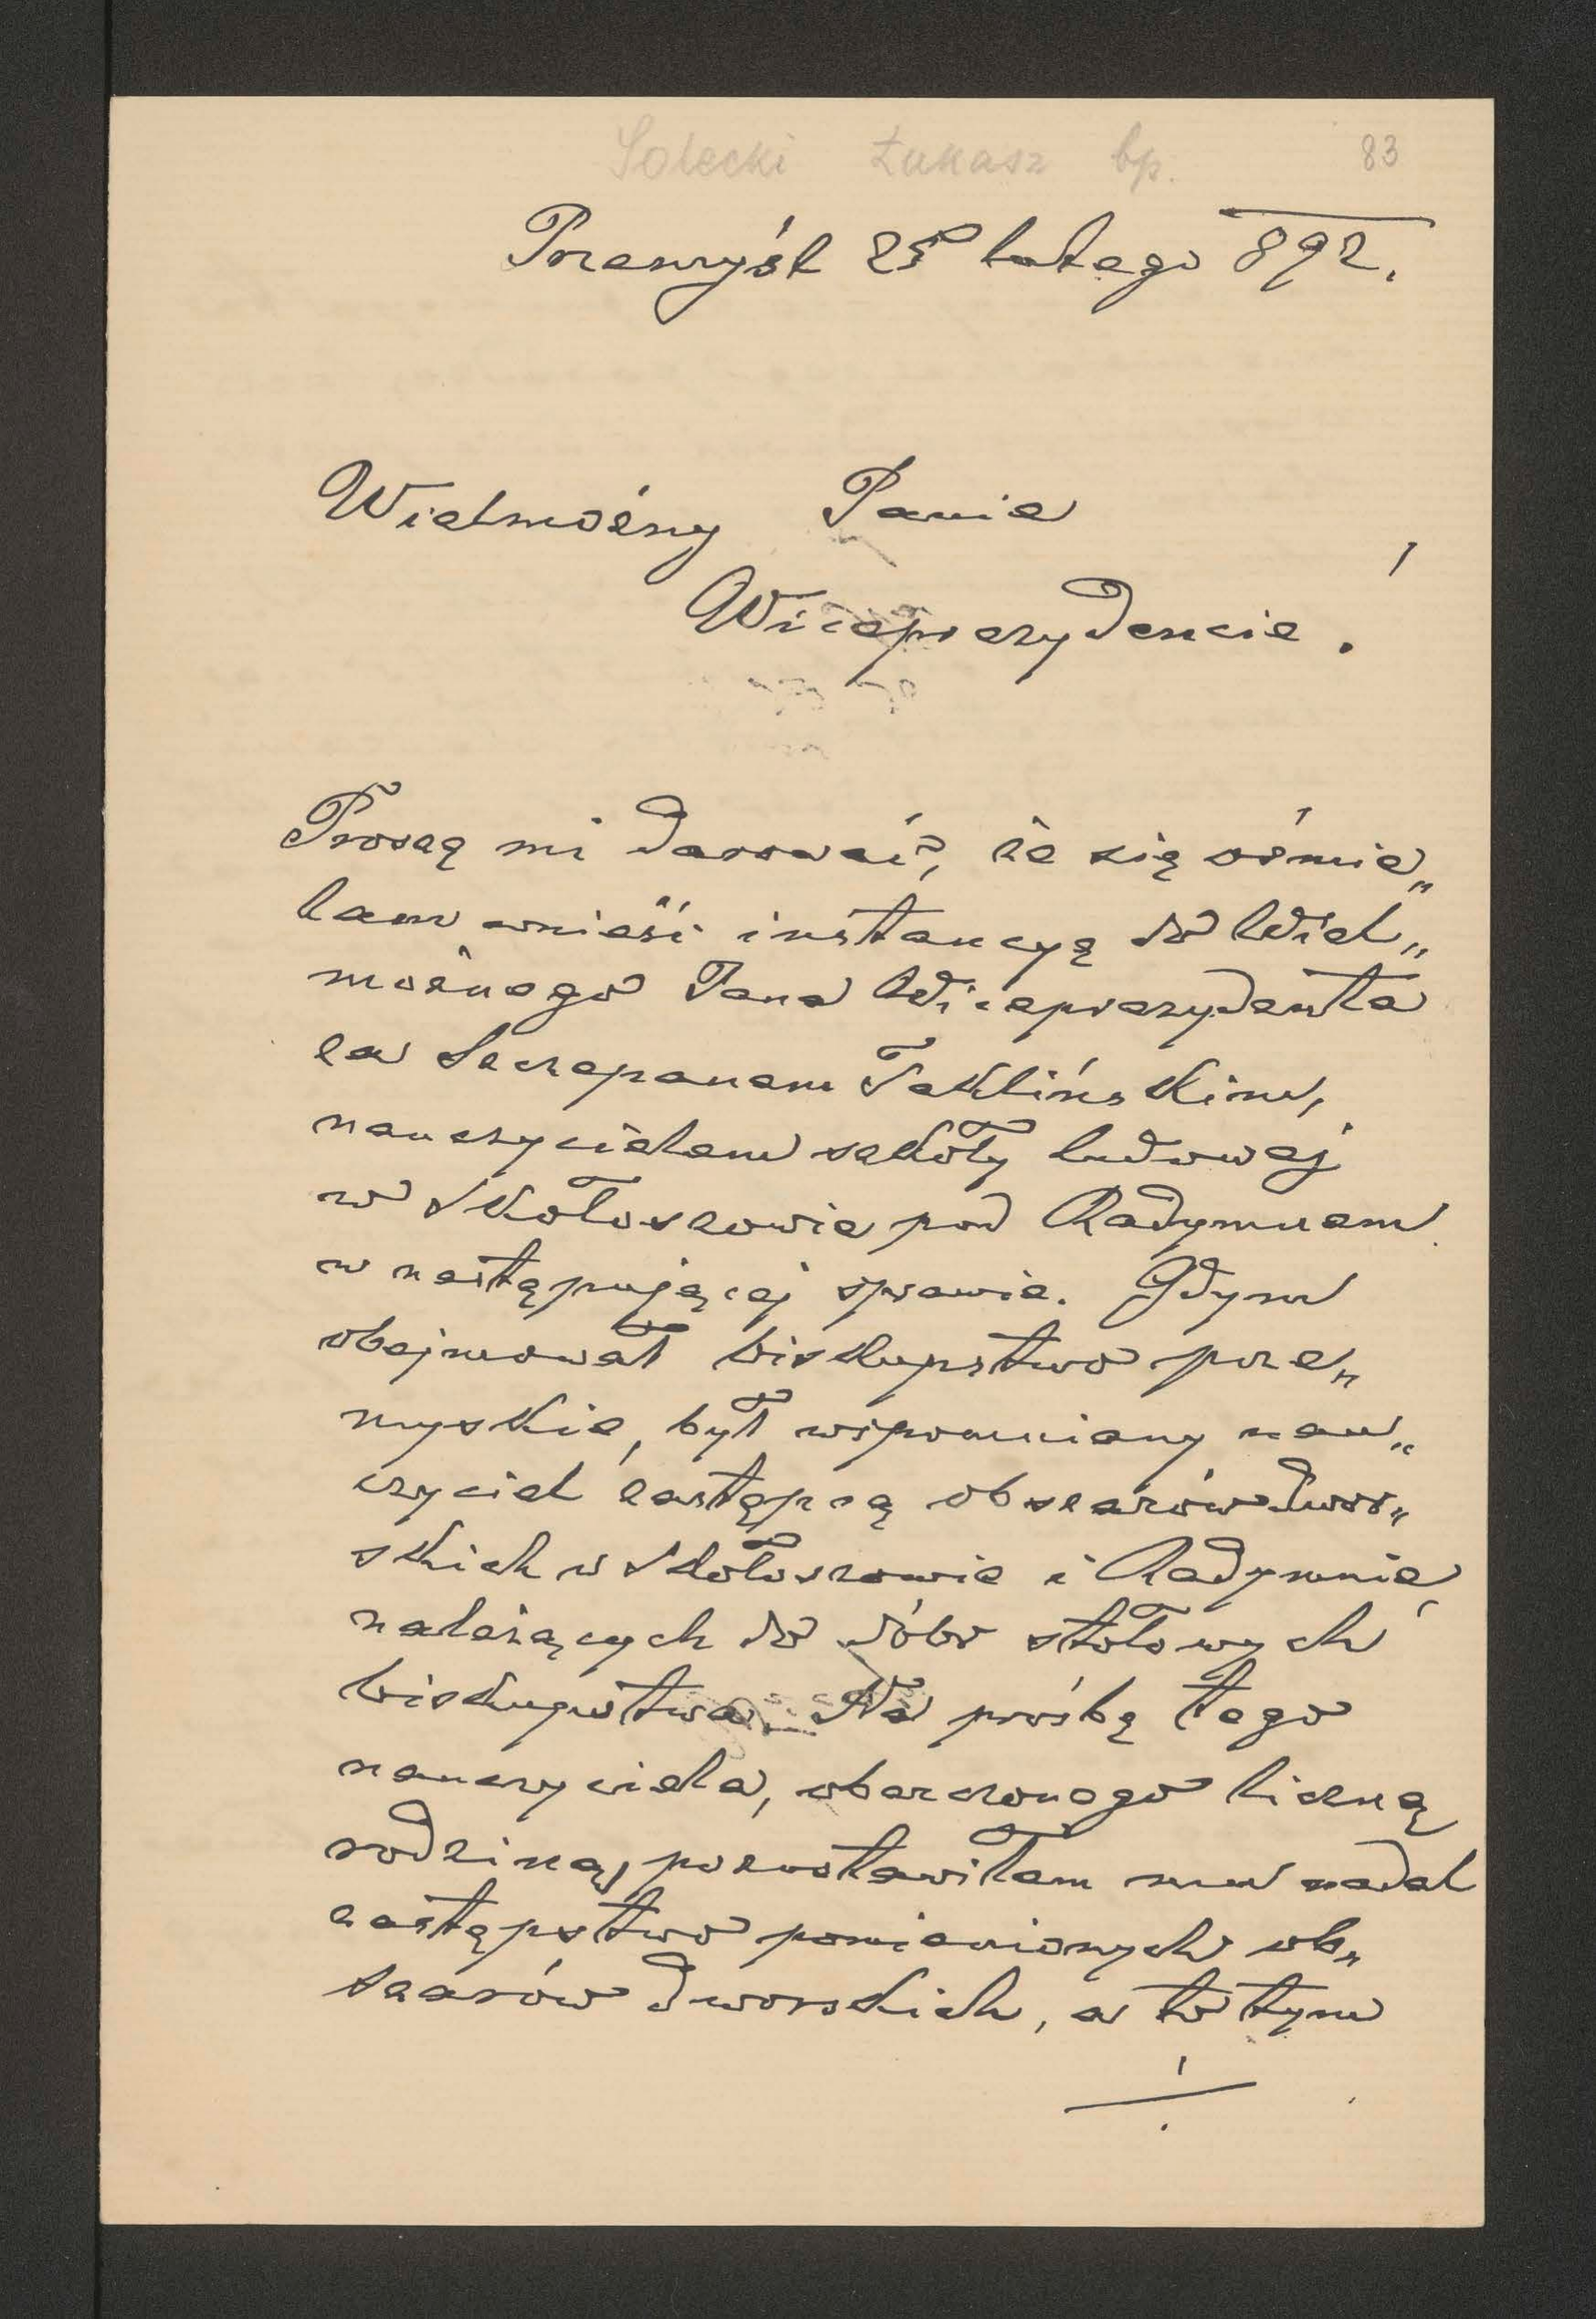 Solecki Łukasz bp. 83
Przemyśl 25 lutego 892.
Wielmożny Panie
Wiceprezydencie!
Proszę mi darować, że się ośmie„
lam wnieść instancyą do Wiel„
możnego Pana Wiceprezydenta
za Szczepanem Teklińskim,
nauczycielem szkoły ludowej
w Skołoszowie pod Radymnem
w następującej sprawie. Gdym
obejmował biskupstwo prze„
myskie, był wspomniany nau„
czyciel zastępcą obszarów dwor„
skich w Skołoszowie i Radymnie,
należących do dóbr stołowych
biskupstwa. Na prośbę tego
nauczyciela, obarczonego liczną
rodziną, pozostawiłem mu nadal
zastępstwo pomienionych ob„
szarów dworskich, a to tym